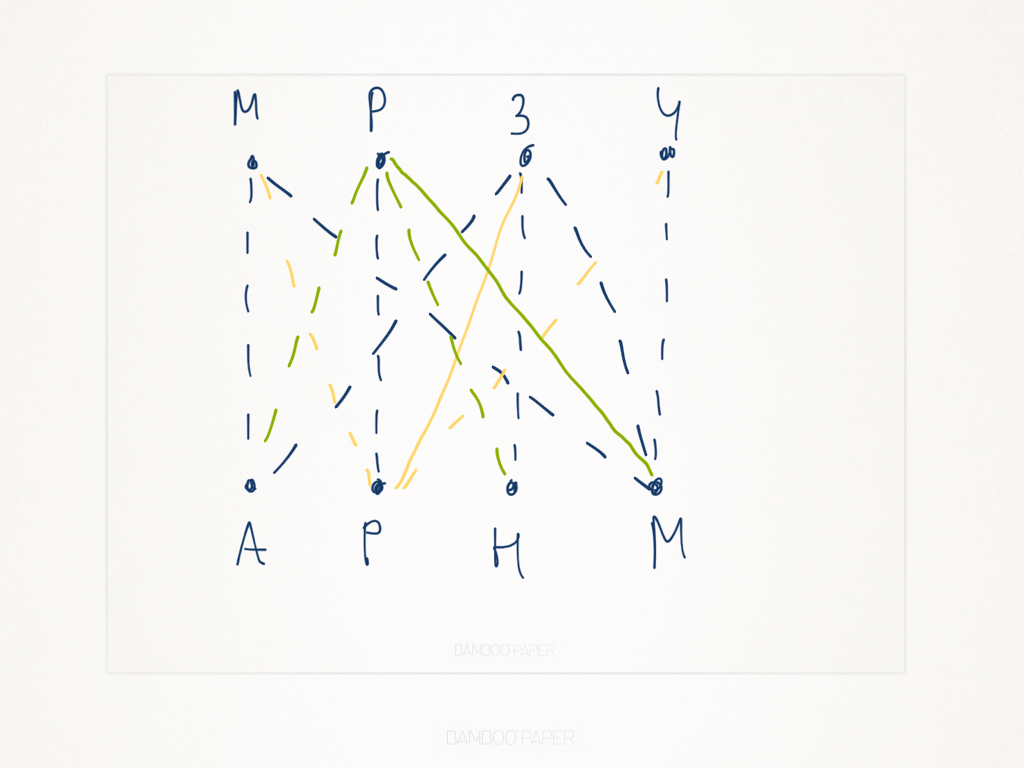 М Р З Ч
А Р Н М
BAMBOO PAPER
BAMBOO PAPER